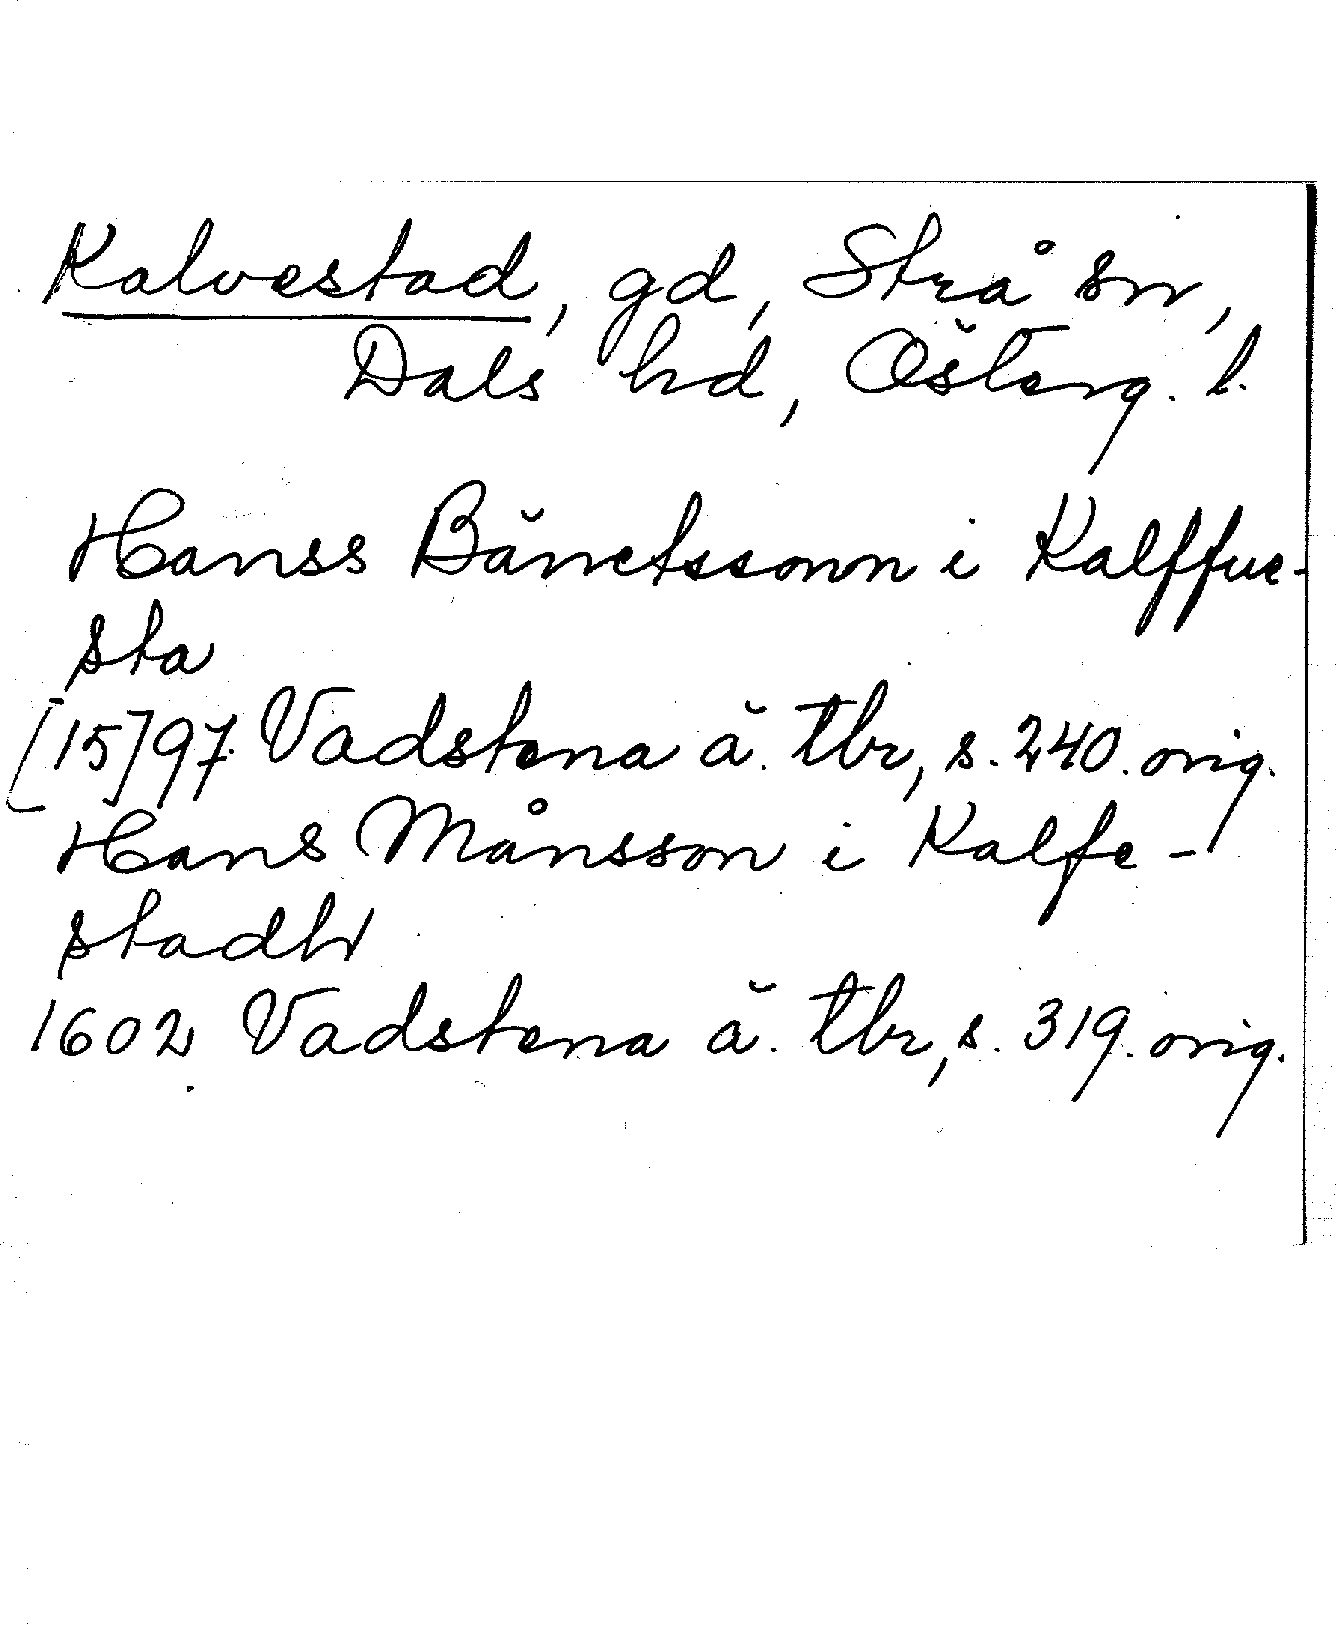 Kalvestad, gd, Strå sn,
Dals hd, Österg. l.
Hanss Bänctssonn i Kalffue-
sta
[15]97 Vadstena ä. tbr, s. 240. orig.
Hans Månsson i Kalfe-
stadh
1602 Vadstena ä. tbr, s. 319. orig.